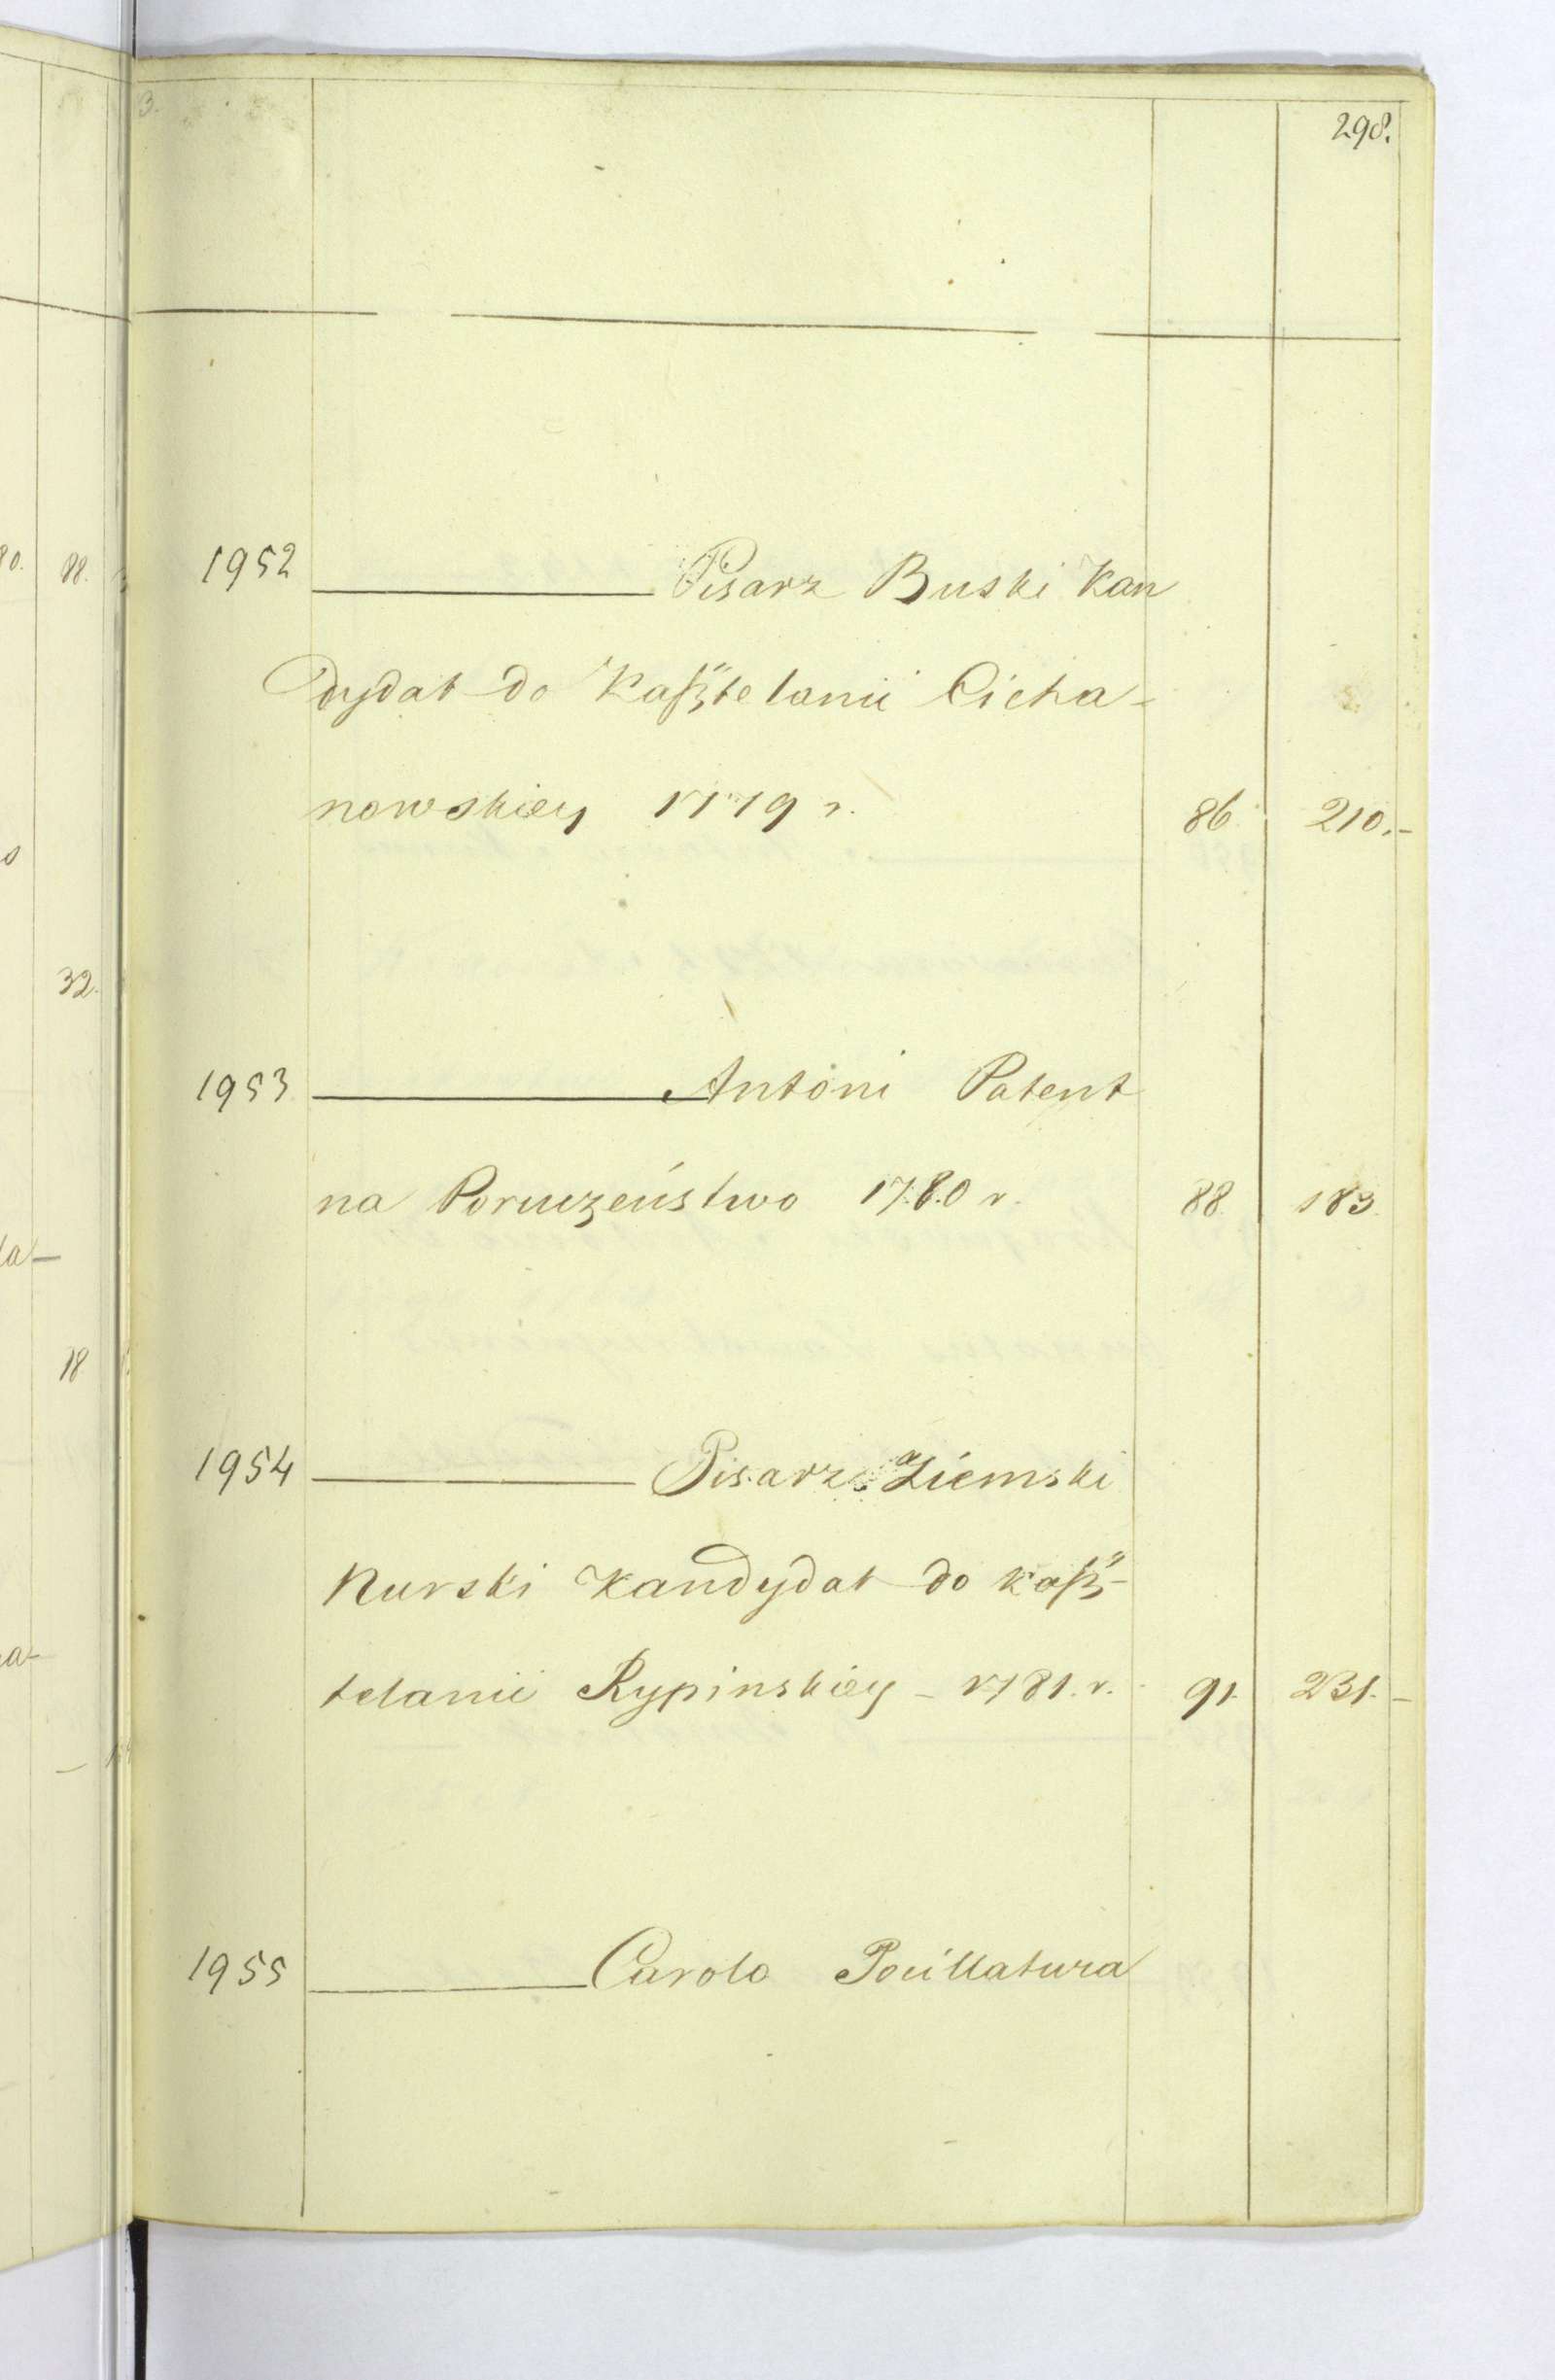 298.
1952 ———— Pisarz Buski Kan
dydat do Kaßtelanii Cicha-
nowskiey 1779 r. 86. 210.-
1953 ———— Antoni Patent
na Poruczeństwo 1780 r. 88. 183.
1954 ———— Pisarz Ziemski
Nurski Kandydat do Kaß-
telanii Rypinskiey - 1781. r. 91. 231.-
1955 ———— Carolo Pocillatura
80. 88.
32.
la-
18
a-